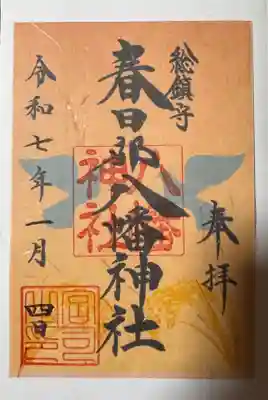 奉拝
総鎮守
春日部八幡神社
八幡
神社
令和七年一月
四日